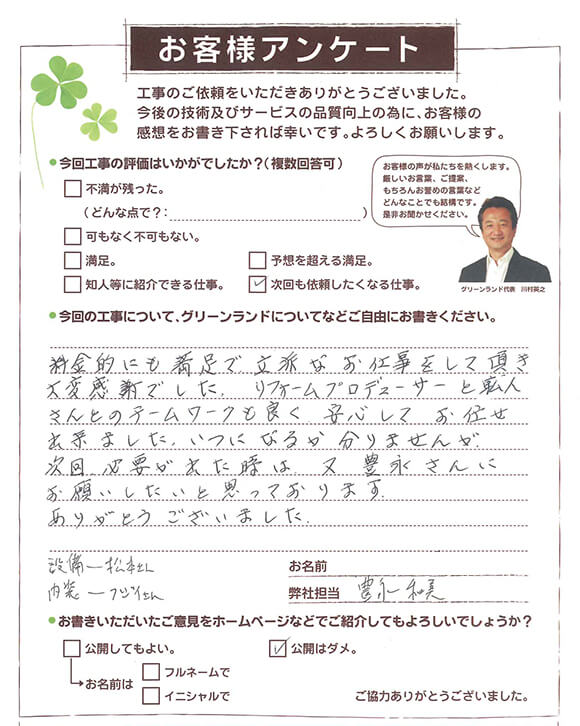 お客様アンケート
工事のご依頼をいただきありがとうございました。
今後の技術及びサービスの品質向上の為に、お客様の
感想をお書き下されば幸いです。よろしくお願いします。
●今回工事の評価はいかがでしたか?(複数回答可)
不満が残った。
(どんな点で?: )
可もなく不可もない。
満足。 予想を超える満足。
知人等に紹介できる仕事。 ✓ 次回も依頼したくなる仕事。
お客様の声が私たちを熱くします。
厳しいお言葉、ご提案、
もちろんお誉めの言葉など
どんなことでも結構です。
是非お聞かせください。
グリーンランド代表 川村英之
●今回の工事について、グリーンランドについてなどご自由にお書きください。
料金的にも満足で立派なお仕事をして頂き
大変感謝でした。リフォームプロデューサーと職人
さんとのチームワークも良く 安心して お任せ
出来ました。いつになるか分りませんが
次回 必要が出た時は 又 豊永さんに
お願いしたいと思っております。
ありがとうございました。
設備ー松本さん
内装ーフジイさん
お名前
弊社担当 豊永 和美
●お書きいただいたご意見をホームページなどでご紹介してもよろしいでしょうか?
公開してもよい。 ✓ 公開はダメ。
お名前は フルネームで
イニシャルで
ご協力ありがとうございました。